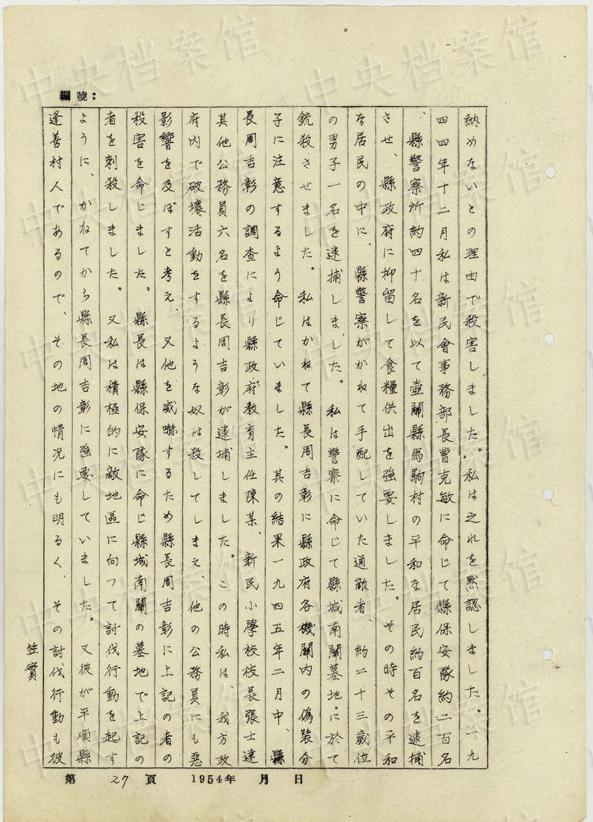 編號：
納めないとの理由で殺害しました。私は之れを黙認しました。一九
四四年十二月私は新民會事務部長曹克敏に命じて縣保安隊約二百名
、縣警察所約四十名を以て壺關縣馬駒村の平和な居民約百名を逮捕
させ、縣政府に抑留して食糧供出を強要しました。その時その平和
な居民の中に、縣警察がかねて手配していた通敵者、約二十三歳位
の男子一名を逮捕しました。私は警察に命じて縣城南關墓地に於て
銃殺させました。私はかねて縣長周吉彰に縣政府各機關内の偽装分
子に注意するよう命じていました。其の結果一九四五年二月中、縣
長周吉彰の調査により縣政府教育主任陳某、新民小學校校長張士達
其他公務員六名を縣長周吉彰が逮捕しました。この時私は、我方政
府内で破壊活動をするような奴は殺してしまえ、他の公務員にも惡
影響を及ぼすと考え、又他を威嚇するため縣長周吉彰に上記の者の
殺害を命じました。縣長は縣保安隊に命じ縣城南關の墓地で上記の
者を刺殺しました。又私は積極的に敵地區に向つて討伐行動を起す
ように、かねてから縣長周吉彰に強要していました。又彼が平順縣
逢善村人であるので、その地の情況にも明るく、その討伐行動も彼
笠實
第 27 頁 1954年 月 日
中央档案馆